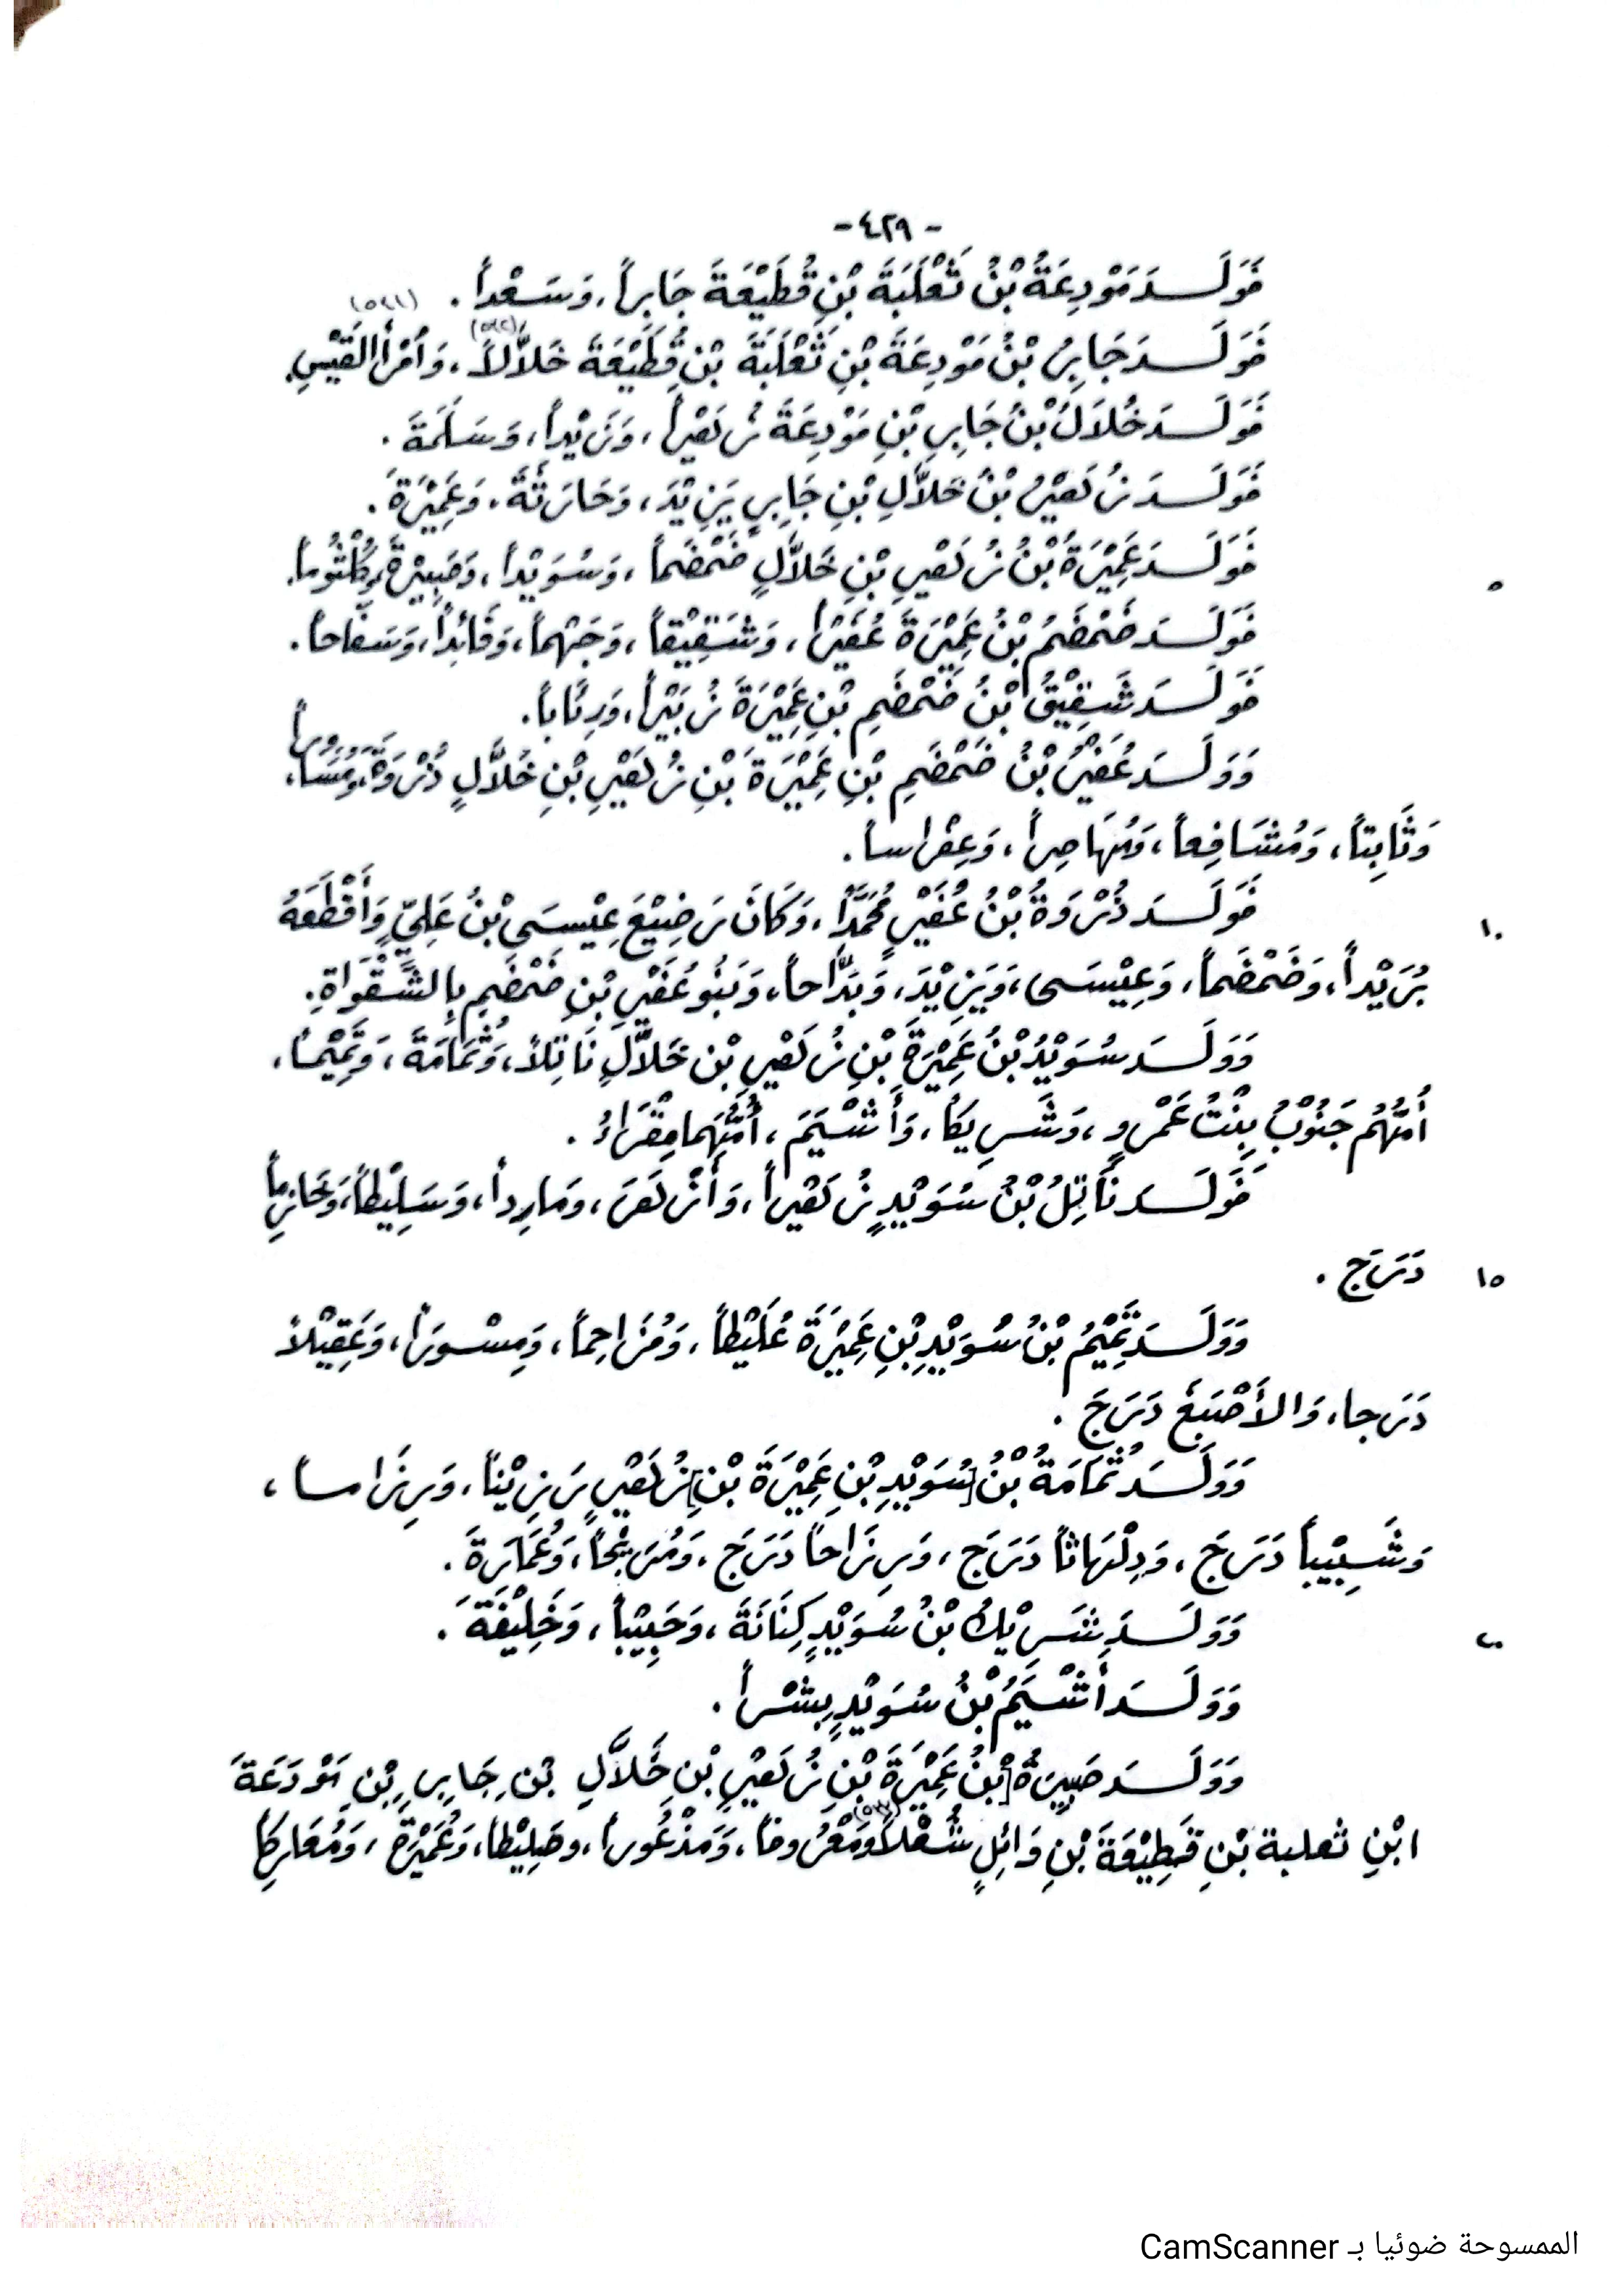 - ٤٢٩ -
فَوَلَدَ مَوْدِعَةُ بْنُ ثَعْلَبَةَ بْنِ قُطَيْعَةَ جَابِراً، وَسَعْداً. (٥٤١)
فَوَلَدَ جَابِرُ بْنُ مَوْدِعَةَ بْنِ ثَعْلَبَةَ بْنِ قُطَيْعَةَ خَلاَّلاً، (٥٤٢) وَامْرَأَ القَيْسِ.
فَوَلَدَ خُلاَلُ بْنُ جَابِرِ بْنِ مَوْدِعَةَ زُهَيْراً، وَزَيْداً، وَسَلَمَةَ.
فَوَلَدَ زُهَيْرُ بْنُ خَلاَّلِ بْنِ جَابِرٍ يَزِيْدَ، وَحَارَثَةَ، وَعَمِيْرَةَ.
فَوَلَدَ عَمِيْرَةُ بْنُ زُهَيْرِ بْنِ خَلاَّلٍ ضَمْضَماً، وَسُوَيْداً، وَصَبِيْرَةَ، وَكُلْثُوماً. ٥
فَوَلَدَ ضَمْضَمُ بْنُ عَمِيْرَةَ عُفَيْراً، وَشَقِيْقاً، وَجَهْماً، وَقَائِداً، وَسَفَّاحاً.
فَوَلَدَ شَقِيْقُ بْنُ ضَمْضَمِ بْنِ عَمِيْرَةَ زُبَيْراً، وَرِئَاباً.
وَوَلَدَ عُفَيْرُ بْنُ ضَمْضَمِ بْنِ عَمِيْرَةَ بْنِ زُهَيْرِ بْنِ خُلاَّلٍ ذُرْوَةَ،
وَثَابِتاً، وَمُشَافِعاً، وَمُهَاصِراً، وَعِفْراساً.
فَوَلَدَ ذُرْوَةُ بْنُ عُفَيْرٍ مُحَمَّداً، وَكَانَ رَضِيْعَ عِيْسَى بْنُ عَلِيٍّ وَأَقْطَعَهُ ١٠
بُرَيْداً، وَضَمْضَماً، وَعِيْسَى، وَيَزِيْدَ، وَبَدَّاحاً، وَبَنُو عُفَيْرِ بْنِ ضَمْضَمٍ بِالشَّقْرَاةِ.
وَوَلَدَ سُوَيْدُ بْنُ عَمِيْرَةَ بْنِ زُهَيْرِ بْن خَلاَّلٍ نَاتِلاً، وَثُمَامَةَ، وَتَمِيْماً،
أُمُّهُم جَنُوْبُ بِنْتُ عَمْرٍو، وَشَرِيكاً، وَأَشْيَمَ، أُمُّهُمَا مِقْرَاءُ.
فَوَلَدَ نَاتِلُ بْنُ سُوَيْدٍ زُهَيْراً، وَأَزْهَرَ، وَمارِداً، وَسَلِيْطاً، وَحَازِماً
دَرَجَ. ١٥
وَوَلَدَ تَمِيْمُ بْنُ سُوَيْدِ بْنِ عَمِيْرَةَ عُلَيْطاً، وَمُزَاحِماً، وَمِسْوَراً، وَعَقِيْلاً
دَرَجا، وَالأَصْبَغَ دَرَجَ.
وَوَلَدَ ثُمَامَةُ بْنُ [سُوَيْدِ بْنِ عَمِيْرَةَ بْنِ] زُهَيْرٍ رَزِيْناً، وَرِزَاماً،
وَشَبِيْباً دَرَجَ، وَدِلْهَاثاً دَرَجَ، وَرِزَاحاً دَرَجَ، وَمُرَيْحاً، وَعُمَارَةَ.
وَوَلَدَ شَرِيْكُ بْنُ سُوَيْدٍ كِنَانَةَ، وَحَبِيْباً، وَخَلِيْفَةَ. ٢٠
وَوَلَدَ أَشْيَمُ بْنُ سُوَيْدٍ بِشْراً.
وَوَلَدَ صَبِيرَةُ [بْنُ عَمِيْرَةَ بْنِ زُهَيْرِ بْنِ خَلاَّلِ بْنِ جَابِرِ بْنِ مَوْدَعَةَ
ابْنِ ثعلبة بْنِ قَطِيْعَةَ بْنِ وَائِلٍ شُعْلاً (٥٤٣) وَمَعْرُوفاً، وَمَذْعُوراً، وصَلِيْطاً، وَعُمَيْرَةَ، وَمُعَارِكاً
الممسوحة ضوئيا بـ CamScanner